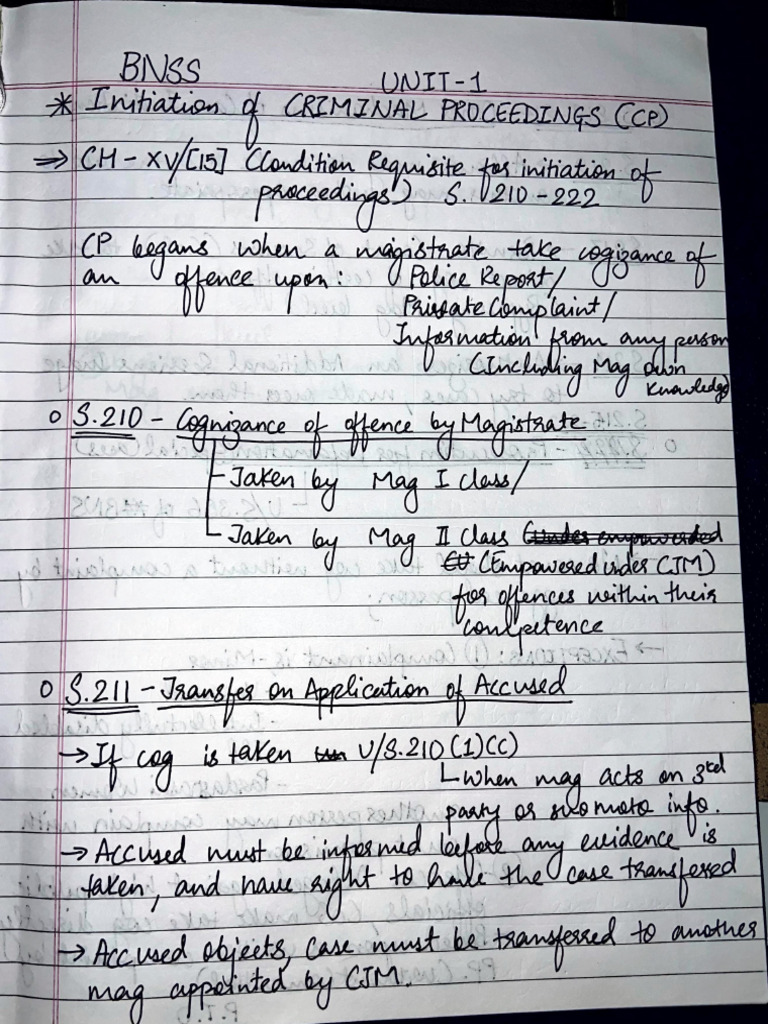 BNSS UNIT-1
* Initiation of CRIMINAL PROCEEDINGS (CP)
⇒ CH - XV/[15] (Condition Requisite for initiation of
proceedings) S. 210 - 222
CP begans when a magistrate take cogizance of
an offence upon: Police Report/
Private Complaint/
Information from any person
(Including Mag own
knowledge)
o S.210 - Cognizance of offence by Magistrate
- Taken by Mag I class/
- Taken by Mag II class (under empowerded
(Empowered under CJM)
for offences within their
competence
o S.211 - Transfer on Application of Accused
→ If cog is taken U/S.210(1)(c)
when mag acts on 3rd
party or suo moto info.
→ Accused must be informed before any evidence is
taken, and have right to have the case transfered
→ Accused objects, case must be transferred to another
mag appointed by CJM.